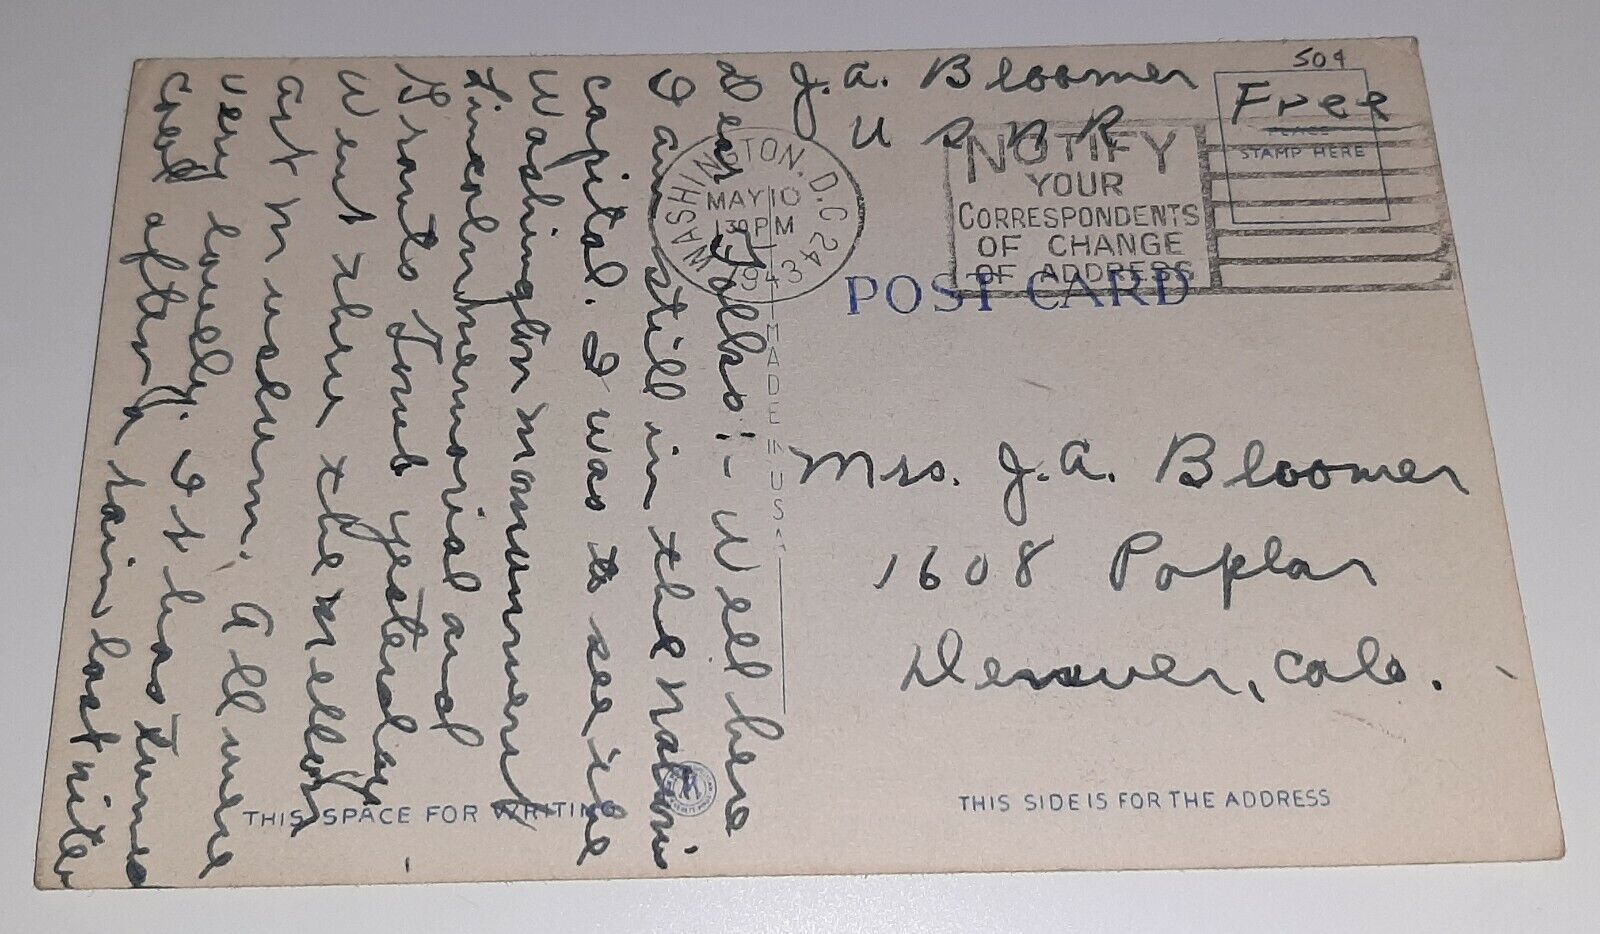 J.A. Bloomer
U S N R
504
Free
PLACE
STAMP HERE
WASHINGTON, D.C. 24
MAY 10
130 PM
1943
NOTIFY
YOUR
CORRESPONDENTS
OF CHANGE
OF ADDRESS
POST CARD
Dear Folks:- Well here
I am still in the Nations
capitol. I was to see the
Washington monument
Lincoln memorial and
Grants Tomb yesterday -
Went thru the Mellon
art museum. All were
very lovely. It has turned
cool after a rain last nite
MADE IN USA
Mrs. J.A. Bloomer
1608 Poplar
Denver, Colo.
THIS SPACE FOR WRITING
THIS SIDE IS FOR THE ADDRESS